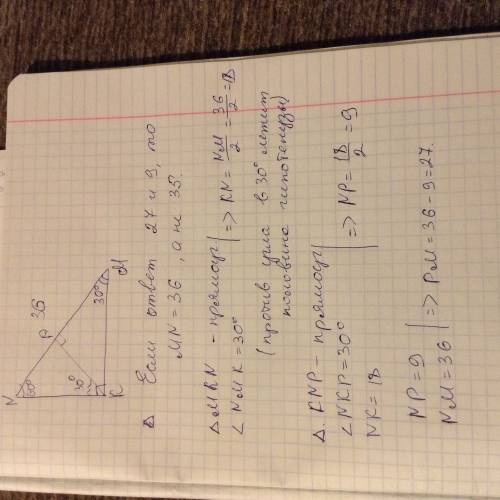 N
60°
P
36
30°
K
30°
M
Δ Если ответ 27 и 9, то
MN = 36, а не 35.
ΔMKN - прямоуг | => KN = NM/2 = 36/2 = 18
∠NMK = 30°
(против угла в 30° лежит
половина гипотенузы)
Δ. KNP - прямоуг | => NP = 18/2 = 9
∠NKP = 30°
NK = 18
NP = 9 | => PM = 36 - 9 = 27.
NM = 36